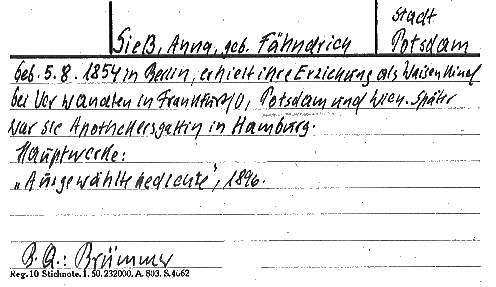 Stadt
Sieß, Anna, geb. Fähndrich Potsdam
Geb. 5. 8. 1854 in Berlin, erhielt ihre Erziehung als Waisenkind
bei Verwandten in Frankfurt/O, Potsdam und Wien. Später
war sie Apothekersgattin in Hamburg.
Hauptwerke:
„Ausgewählte Gedichte", 1896.
B. A.: Brümmer
Reg. 10 Stichnote. 1. 50. 232000. A. 803. S. 4662